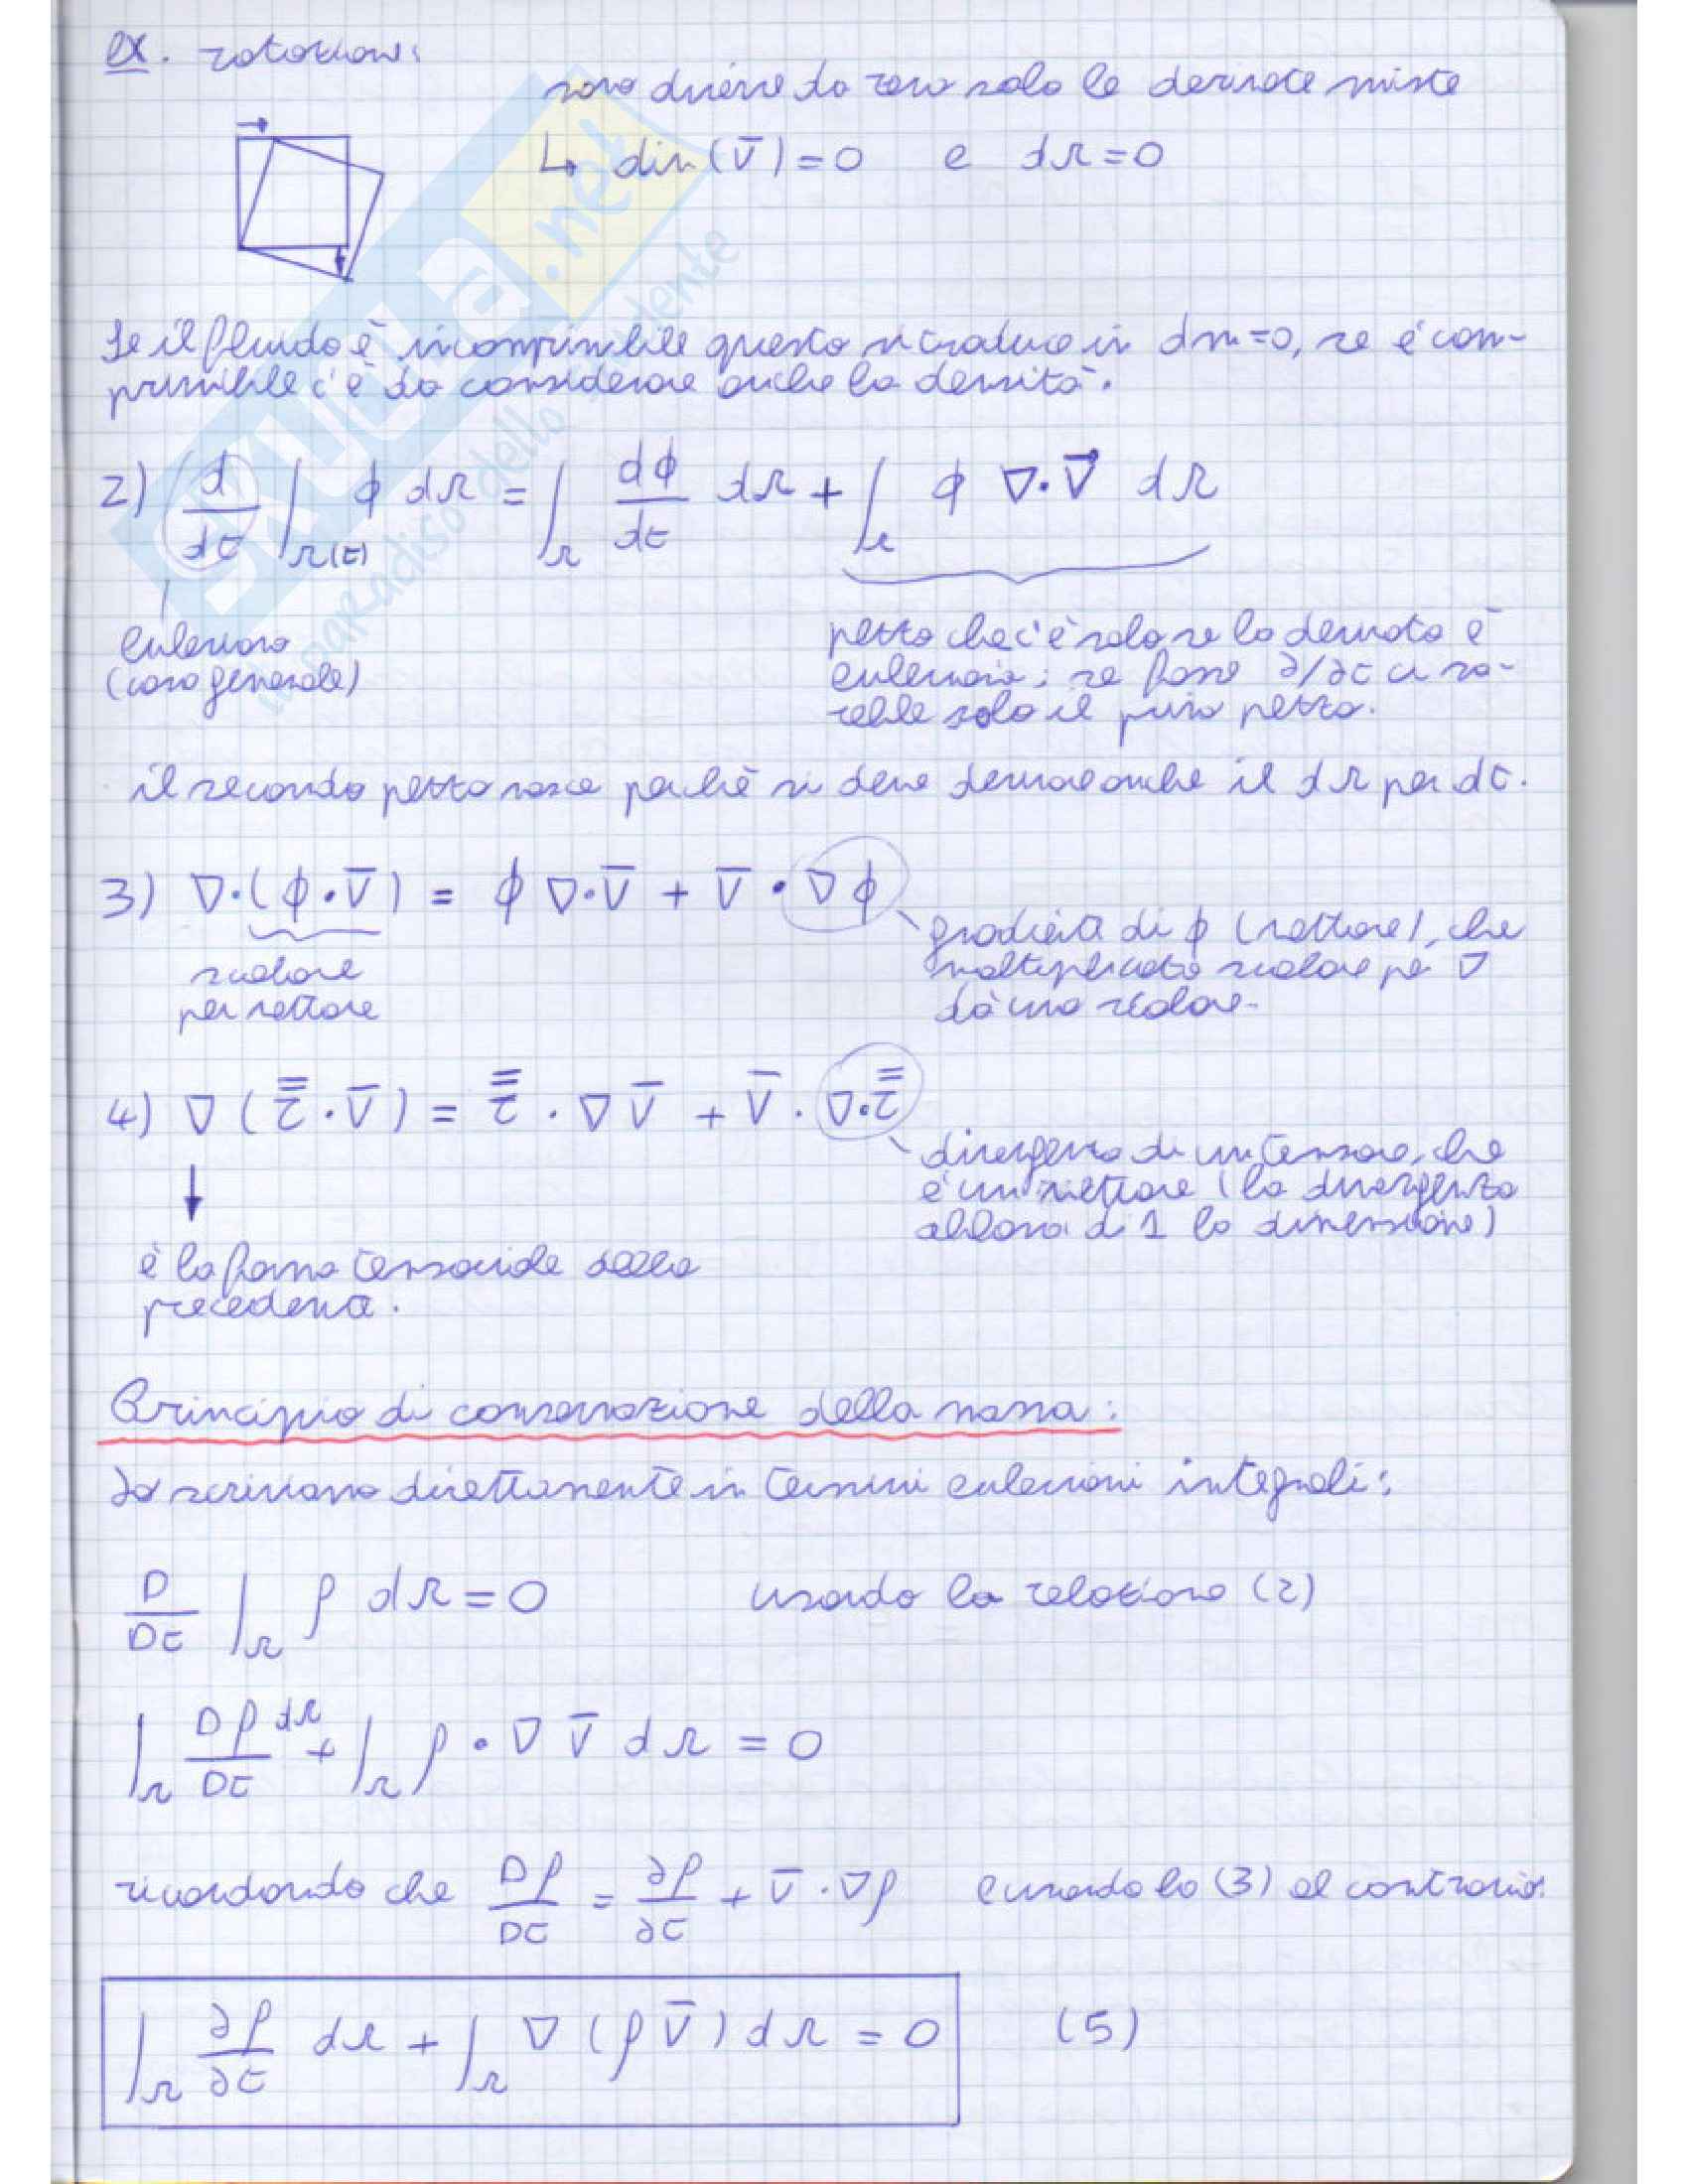 ex. rotazione:
sono diverse da zero solo le derivate miste
↳ div (V̄) = 0 e dΩ = 0
Se il fluido è incomprimibile questo si traduce in dm = 0, se è com-
primibile c'è da considerare anche la densità.
2) d/dt ∫_Ω(t) ϕ dΩ = ∫_Ω dϕ/dt dΩ + ∫_Ω ϕ ∇·V⃗ dΩ
euleriano
(caso generale)
pezzo che c'è solo se la derivata è
euleriana; se fosse ∂/∂t ci sa-
rebbe solo il primo pezzo.
il secondo pezzo nasce perchè si deve derivare anche il dΩ per dt.
3) ∇·(ϕ·V̄) = ϕ ∇·V̄ + V̄ · ∇ϕ
scalare
per vettore
gradiente di ϕ (vettore), che
moltiplicato scalare per V
dà uno scalare.
4) ∇ (τ̿ · V̄) = τ̿ · ∇ V̄ + V̄ · ∇·τ̿
divergenza di un tensore, che
è un vettore (la divergenza
abbassa di 1 la dimensione)
↓
è la forma tensoriale della
precedente.
Principio di conservazione della massa:
Lo scriviamo direttamente in termini euleriani integrali:
D/Dt ∫_Ω ρ dΩ = 0 usando la relazione (2)
∫_Ω Dρ/Dt dΩ + ∫_Ω ρ · ∇ V̄ dΩ = 0
ricordando che Dρ/Dt = ∂ρ/∂t + V̄ · ∇ρ e usando la (3) al contrario:
∫_Ω ∂ρ/∂t dΩ + ∫_Ω ∇ (ρ V̄) dΩ = 0 (5)
SKUOLA.net
il paradiso dello studente